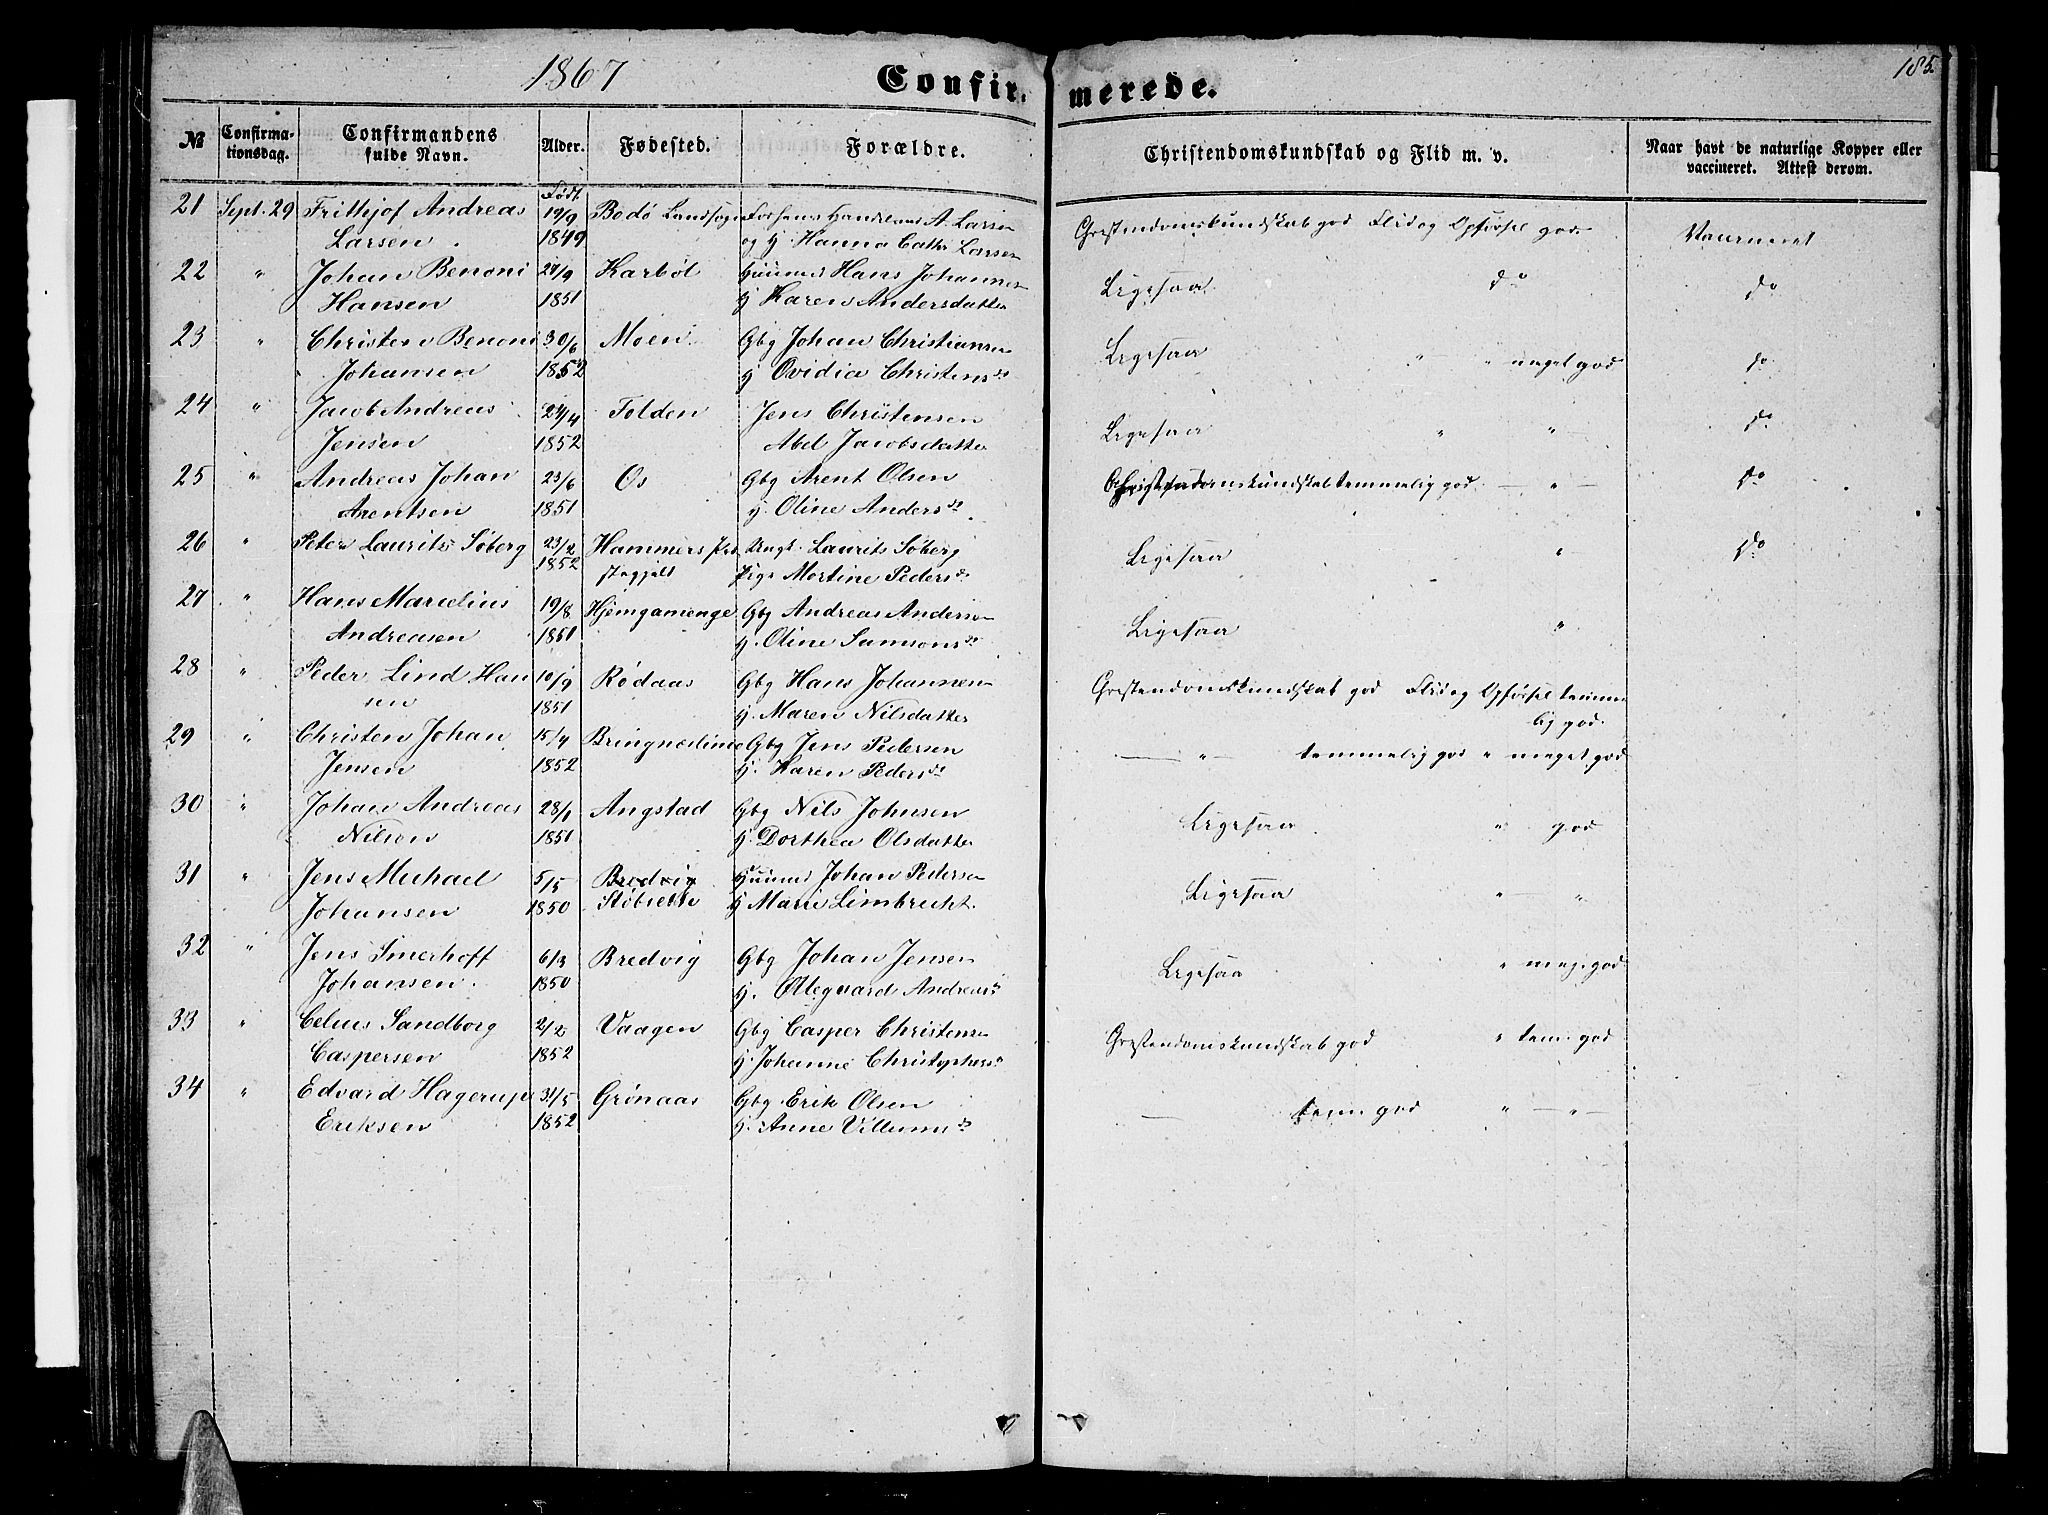 1867 Confir- merede. 185
№ Confirma-tionsdag. Confirmandens fulde Navn. Alder. Fødested. Forældre. Christendomskundskab og Flid m. v. Naar havt de naturlige Kopper eller vaccineret. Attest derom.
Født
21 Sept. 29 Frithjof Andreas 19/9 Bodø Landsogn A. Larsen
Larsen 1849 og H. Hanna Cath. Larsen
Christendomskundskab god Flid og Opførsel god Vaccineret
22 " Johan Benoni 27/9 Karbøl Huusmd Hans Johannes
Hansen 1851 H Karen Andersdatter
Ligesaa do do
23 " Christen Benoni 30/6 Moen Gbg Johan Christiansen
Johansen 1852 H Ovidia Christensd.
Ligesaa " " meget god do
24 " Jacob Andreas 24/4 Folden Jens Christensen
Jensen 1852 Abel Jacobsdatter
Ligesaa " " do
25 " Andreas Johan 23/6 Os Gbg Arent Olsen
Arentsen 1851 H. Oline Andersd.
Christendomskundskab temmelig god — " — do
26 " Peter Laurits Søberg 23/2 Hammers Præ Ungk. Laurits Søberg
1852 stegjeld Pige Mortine Pedersd.
Ligesaa " do
27 " Hans Marelius 19/8 Hjemgamenge Gbg Andreas Anderson
Andreasen 1851 H. Oline Samsonsd.
Ligesaa "
28 " Peder Lind Han 10/9 Rødaas Gbg Hans Johannesen
sen 1851 H. Maren Nilsdatter
Christendomskundskab god Flid og Opførsel temme
lig god.
29 " Christen Johan 15/4 Bringneslime Gbg Jens Pedersen
Jensen 1852 H. Karen Pedersd.
— " — temmelig god " meget god
30 " Johan Andreas 28/1 Angstad Gbg Nils Johnsen
Nilsen 1851 H. Dorthea Olsdatter
Ligesaa " god
31 " Jens Michael 5/5 Bredvig Huusmd Johan Pedersen
Johansen 1850 H Marie Limbrecht.
Ligesaa " "
32 " Jens Smerhoff 6/3 Bredvig Gbg Johan Jensen
Johansen. 1850 H. Ollegaard Andreasd.
Ligesaa " meg. god
33 " Celius Sandborg 2/2 Vaagen Gbg Casper Christensen
Caspersen 1852 H. Johanne Christophersd.
Christendomskundskab god " tem. god
34 " Edvard Hagerup 31/5 Grønaas Gbg Erik Olsen
Eriksen 1852 H. Anne Villumsd.
— tem. god " — " —